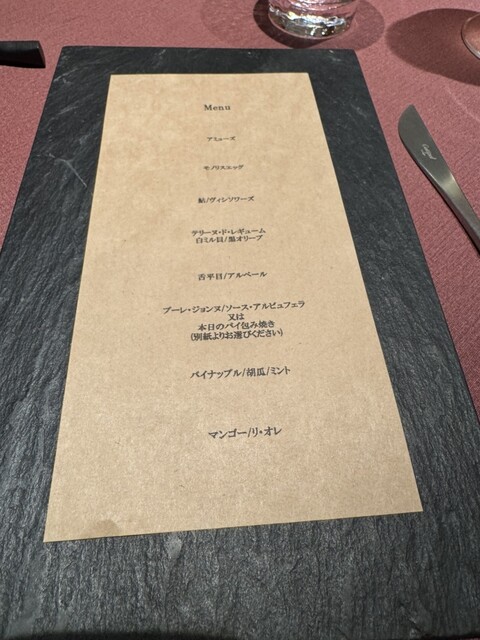 Menu
アミューズ
モノリスエッグ
鮎/ヴィシソワーズ
テリーヌ・ド・レギューム
白ミル貝/黒オリーブ
舌平目/アルベール
プーレ・ジョンヌ/ソース・アルビュフェラ
又は
本日のパイ包み焼き
(別紙よりお選びください)
パイナップル/胡瓜/ミント
マンゴー/リ・オレ